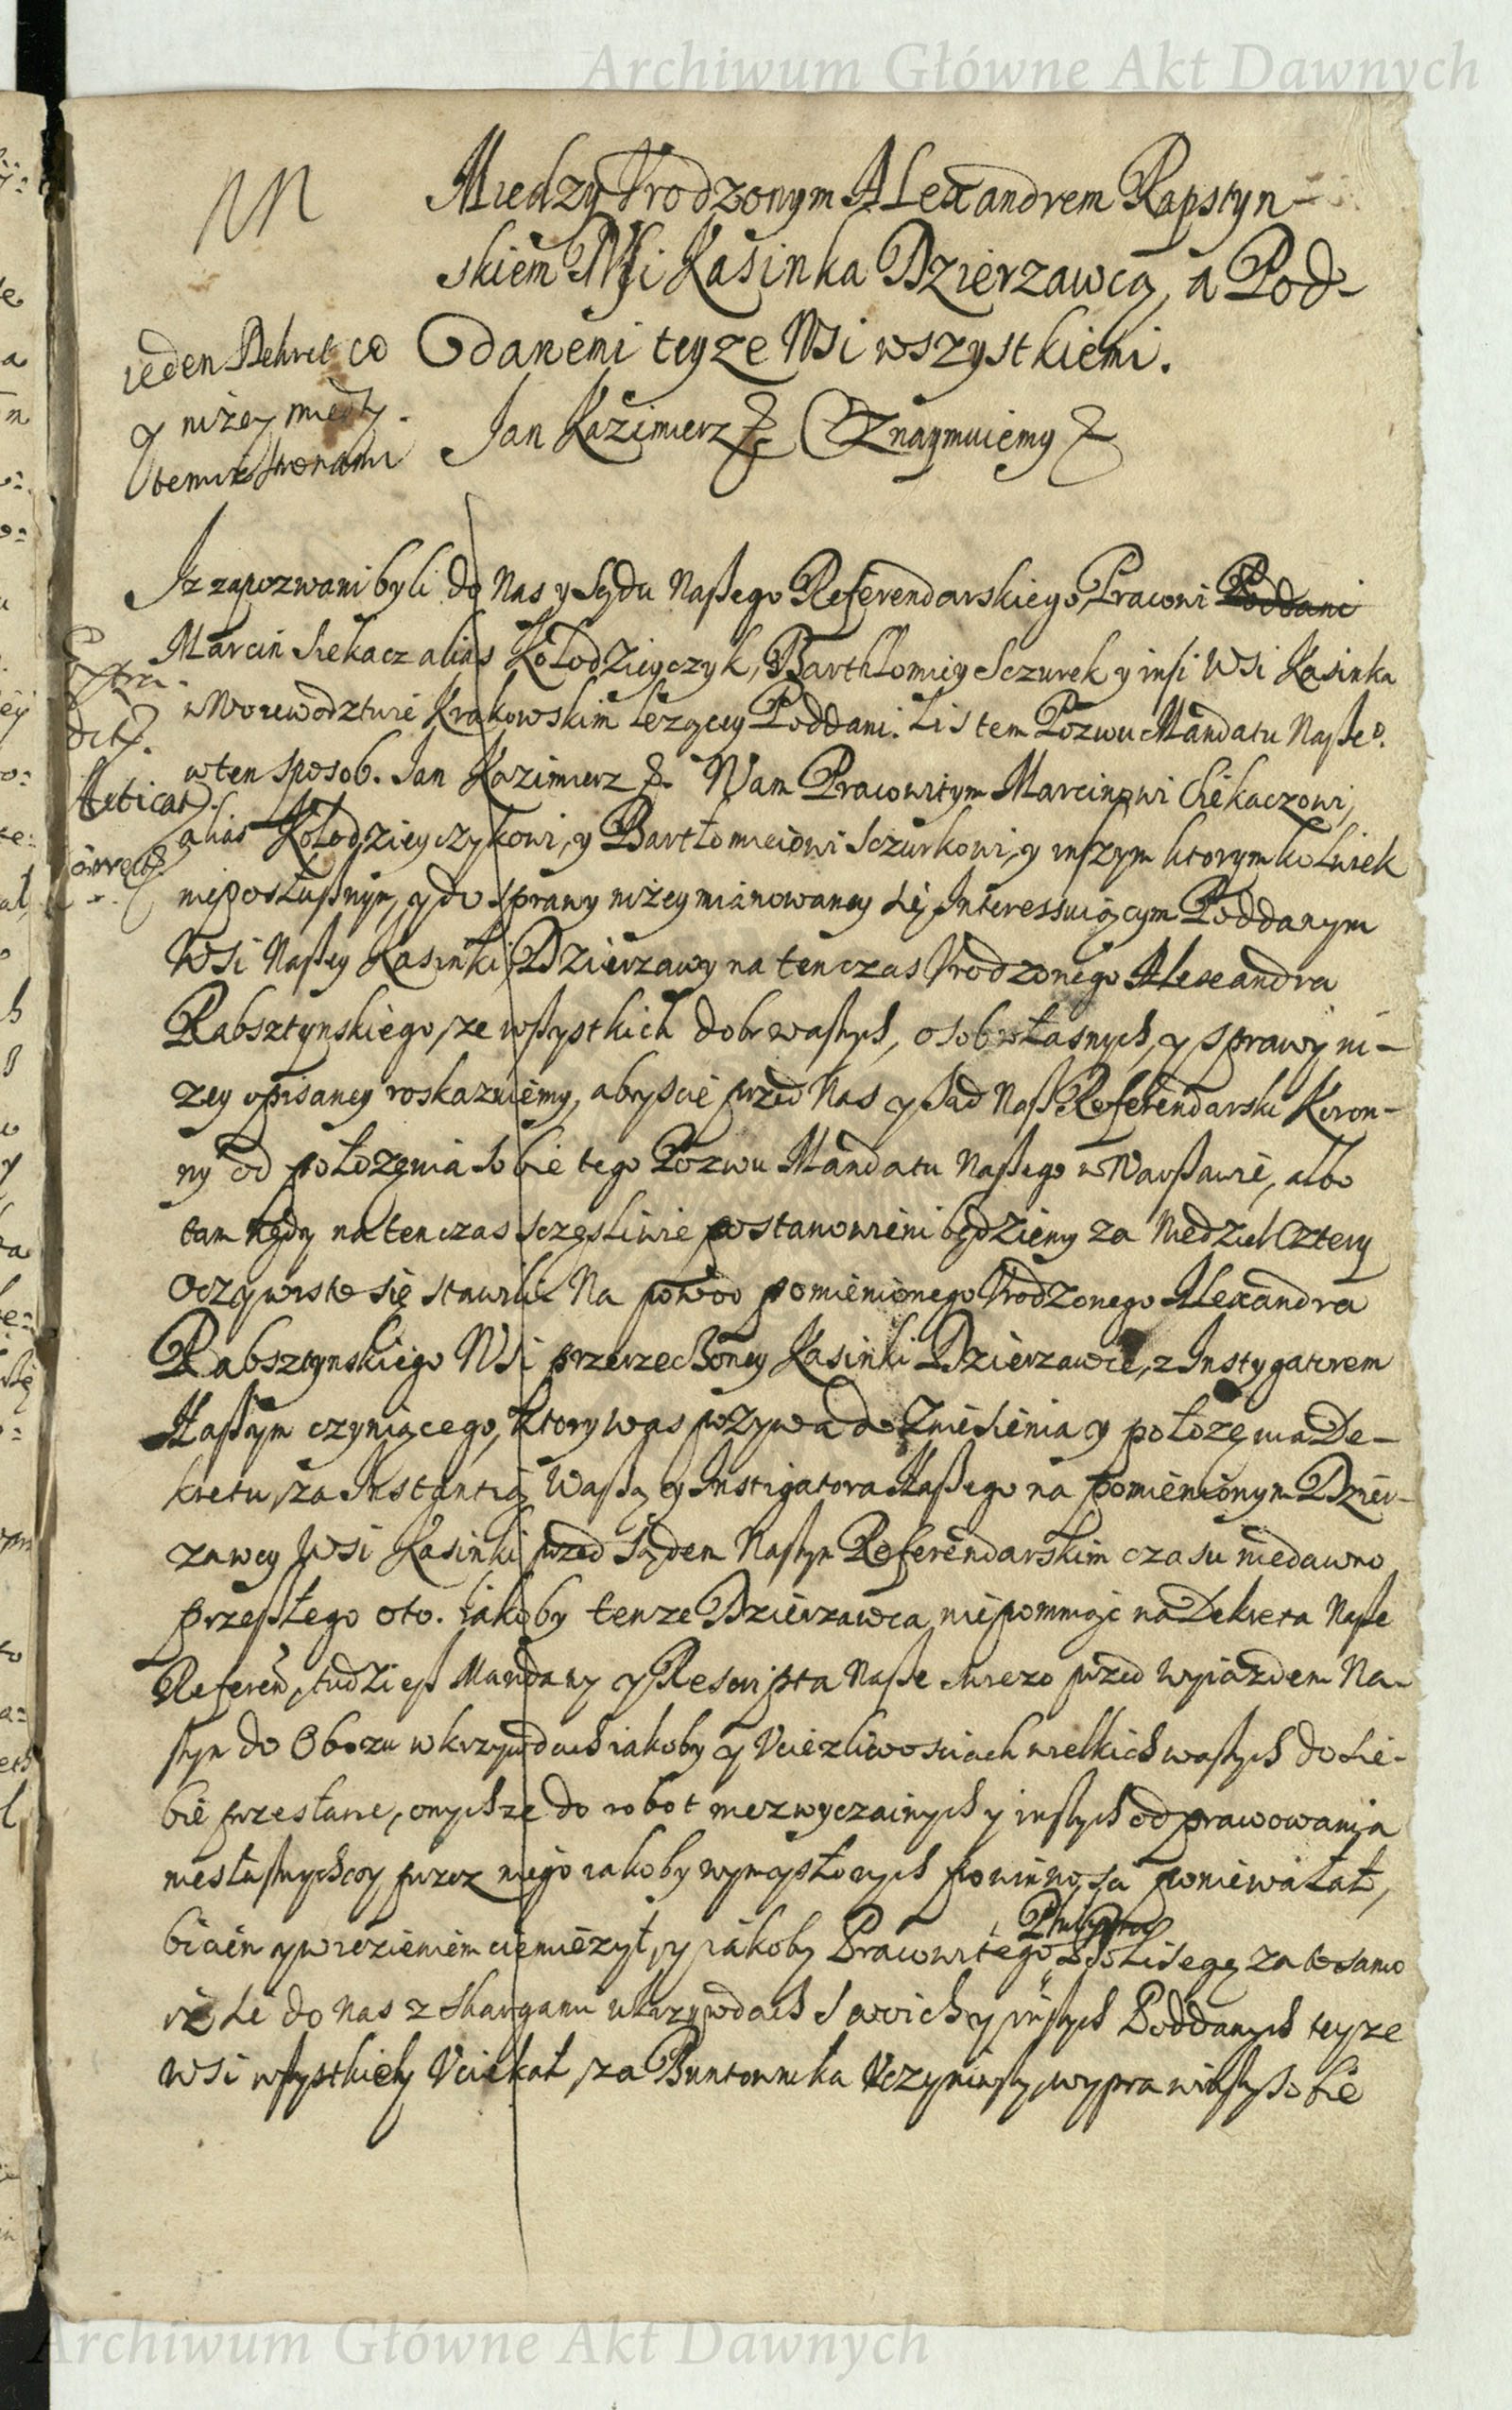 Archiwum Główne Akt Dawnych
Miedzy Vrodzonym Alexandrem Rapstyn-
skiem Wsi Kasinka Dzierzawcą, a Pod-
danemi teyze Wsi wszystkiemi.
Jan Kazimierz &. Oznaymuiemy &
ieden Dekret co
y nizey miedzy
temiz stronami
Iz zapozwani byli do Nas y Sądu Naßego Referendarskiego, Pracowi Poddani
Marcin Siekacz alias Kołodzieyczyk, Barthłomiey Sczurek y insi Wsi Kasinka
w Woiewodztwie Krakowskim lezącey Poddani. Listem Pozwu Mandatu Naße°.
w ten sposob. Jan Kazimierz &. Wam Pracowitym Marcinowi Siekaczowi,
alias Kołodzieyczykowi, y Bartłomieiowi Sczurkowi, y inszym ktorymkolwiek
niposłußnym, y do sprawy nizey mianowaney się Interessuiącym Poddanym
Wsi Naßey Kasinki, Dzierzawy na ten czas Vrodzonego Alexandra
Rabsztynskiego, ze wßystkich dobr waßych, osob własnych, y sprawy ni-
zey opisaney roskazuiemy, abyscie przed Nas y Sad Naß Referendarski Koron-
ny od połozenia sobie tego Pozwu Mandatu Naßego w Warßawie, albo
tam kędy na ten czas sczęsliwie postanowieni będziemy za Niedziel Cztery
Oczywisto się stawili. Na powod pomienionego Vrodzonego Alexandra
Rabsztynskiego Wsi przerzeczoney Kasinki Dzierzawce, z Instygatorem
Naßym czyniącego, ktory was pozywa do Zniesienia y połozenia De-
kretu, za Instantią Waßą y Instigatora Naßego na pomienionym Dzier-
zawcy Wsi Kasinki przed Sądem Naßym Referendarskim czasu niedawno
przeßłego oto. iakoby tenze Dzierzawca niepomniąc na Dekreta Naße
Referen, tudzieß Mandaty y Rescripta Naße swiezo przed wyiazdem Na-
ßym do Obozu w krzywdach iakoby y Vciezliwosciach wielkich waßych do sie-
bie przesłane, onychze do robot niezwyczainych y inßych odprawowania
niesłußnych czy przez niego iakoby wymysłonych powinno sci poniewalał,
biciem y więzieniem ciemięzył, y iakoby Pracowitego Lisegę za to samo
iz sie do Nas z skargami w krzywdach swoich y inßych Poddanych teyze
Wsi wßystkich Vciekał, za Buntownika Vczyniwßy, wyprawiwßy sobie
Archiwum Główne Akt Dawnych